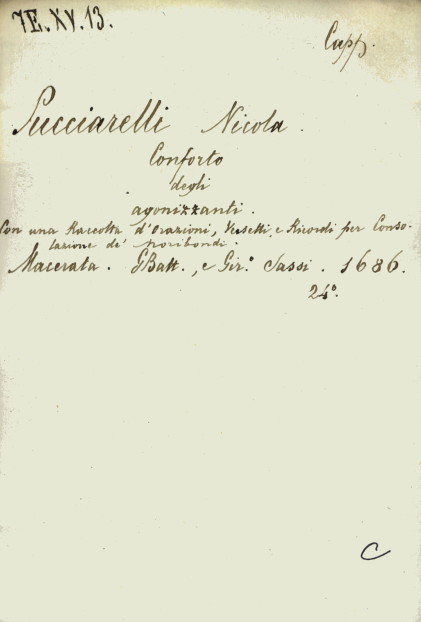 7E.XV.13.
Capp.
Pucciarelli Nicola.
Conforto
degli
agonizzanti.
Con una Raccolta d'Orazioni, Versetti, e Ricordi per Conso-
lazione de' moribondi.
Macerata. GBatt., e Gir.º Sassi. 1686.
24º.
C